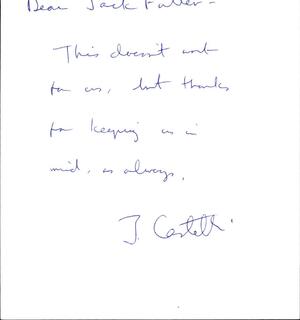 Dear Jack Fuller -
This doesn't work
for us, but thanks
for keeping us in
mind, as always.
J. Castelli